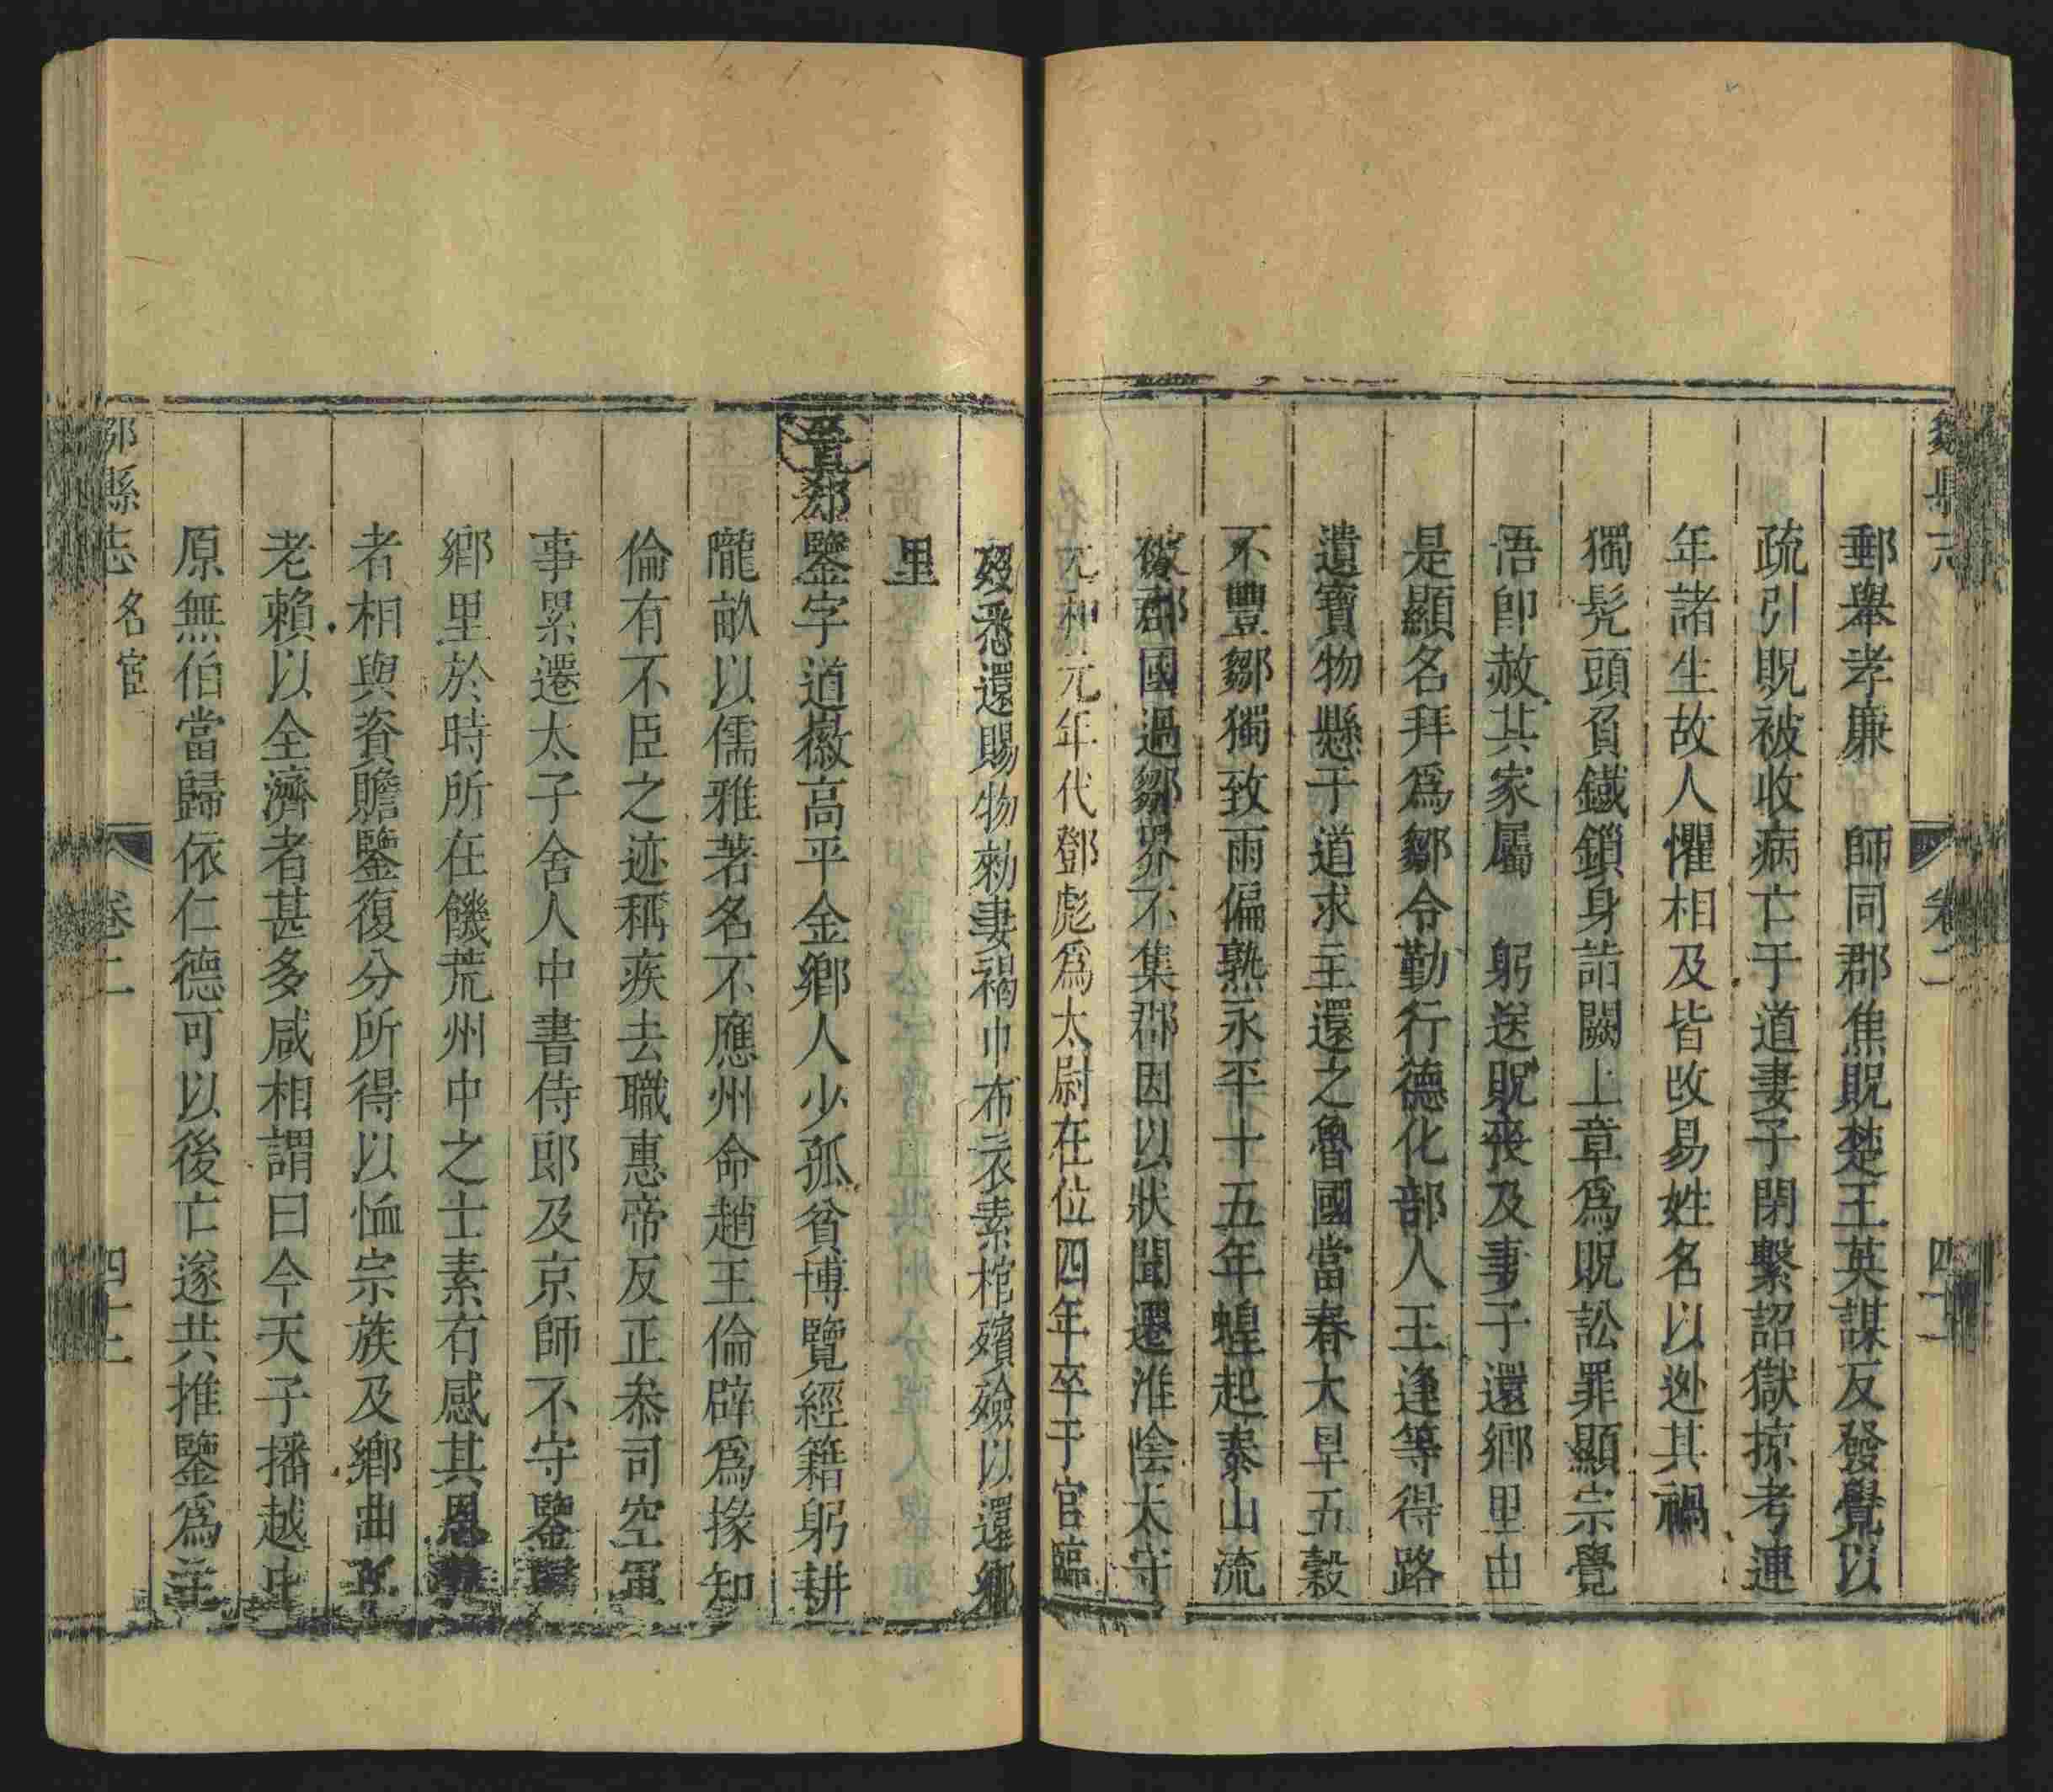 鄒縣志
卷二
四十二
郵舉孝廉　師同郡焦貺楚王英謀反發覺以
疏引貺被收病亡于道妻子閉繫詔獄掠考連
年諸生故人懼相及皆攺易姓名以迯其禍
獨髠頭負鐵鎖身詣闕上章爲貺訟罪顯宗覺
悟卽赦其家屬　躬送貺喪及妻子還鄉里由
是顯名拜爲鄒令勤行德化部人王逢等得路
遺寶物懸于道求主還之魯國當春大旱五穀
不豐鄒獨致雨偏熟永平十五年蝗起泰山流
被郡國過鄒界不集郡因以狀聞遷淮陰太守
元和元年代鄧彪爲太尉在位四年卒于官臨
歿悉還賜物勑妻褐巾布衣素棺殯殮以還鄉
里
晋郗鑒字道徽高平金鄉人少孤貧博覽經籍躬耕
隴畝以儒雅著名不應州命趙王倫辟爲掾知
倫有不臣之迹稱疾去職惠帝反正叅司空軍
事累遷太子舍人中書侍郎及京師不守鑒歸
鄉里於時所在饑荒州中之士素有感其恩
者相與資贍鑒復分所得以恤宗族及鄉曲孤
老賴以全濟者甚多咸相謂曰今天子播越中
原無伯當歸依仁德可以後亡遂共推鑒爲主
鄒縣志
名宦
卷二
四十二